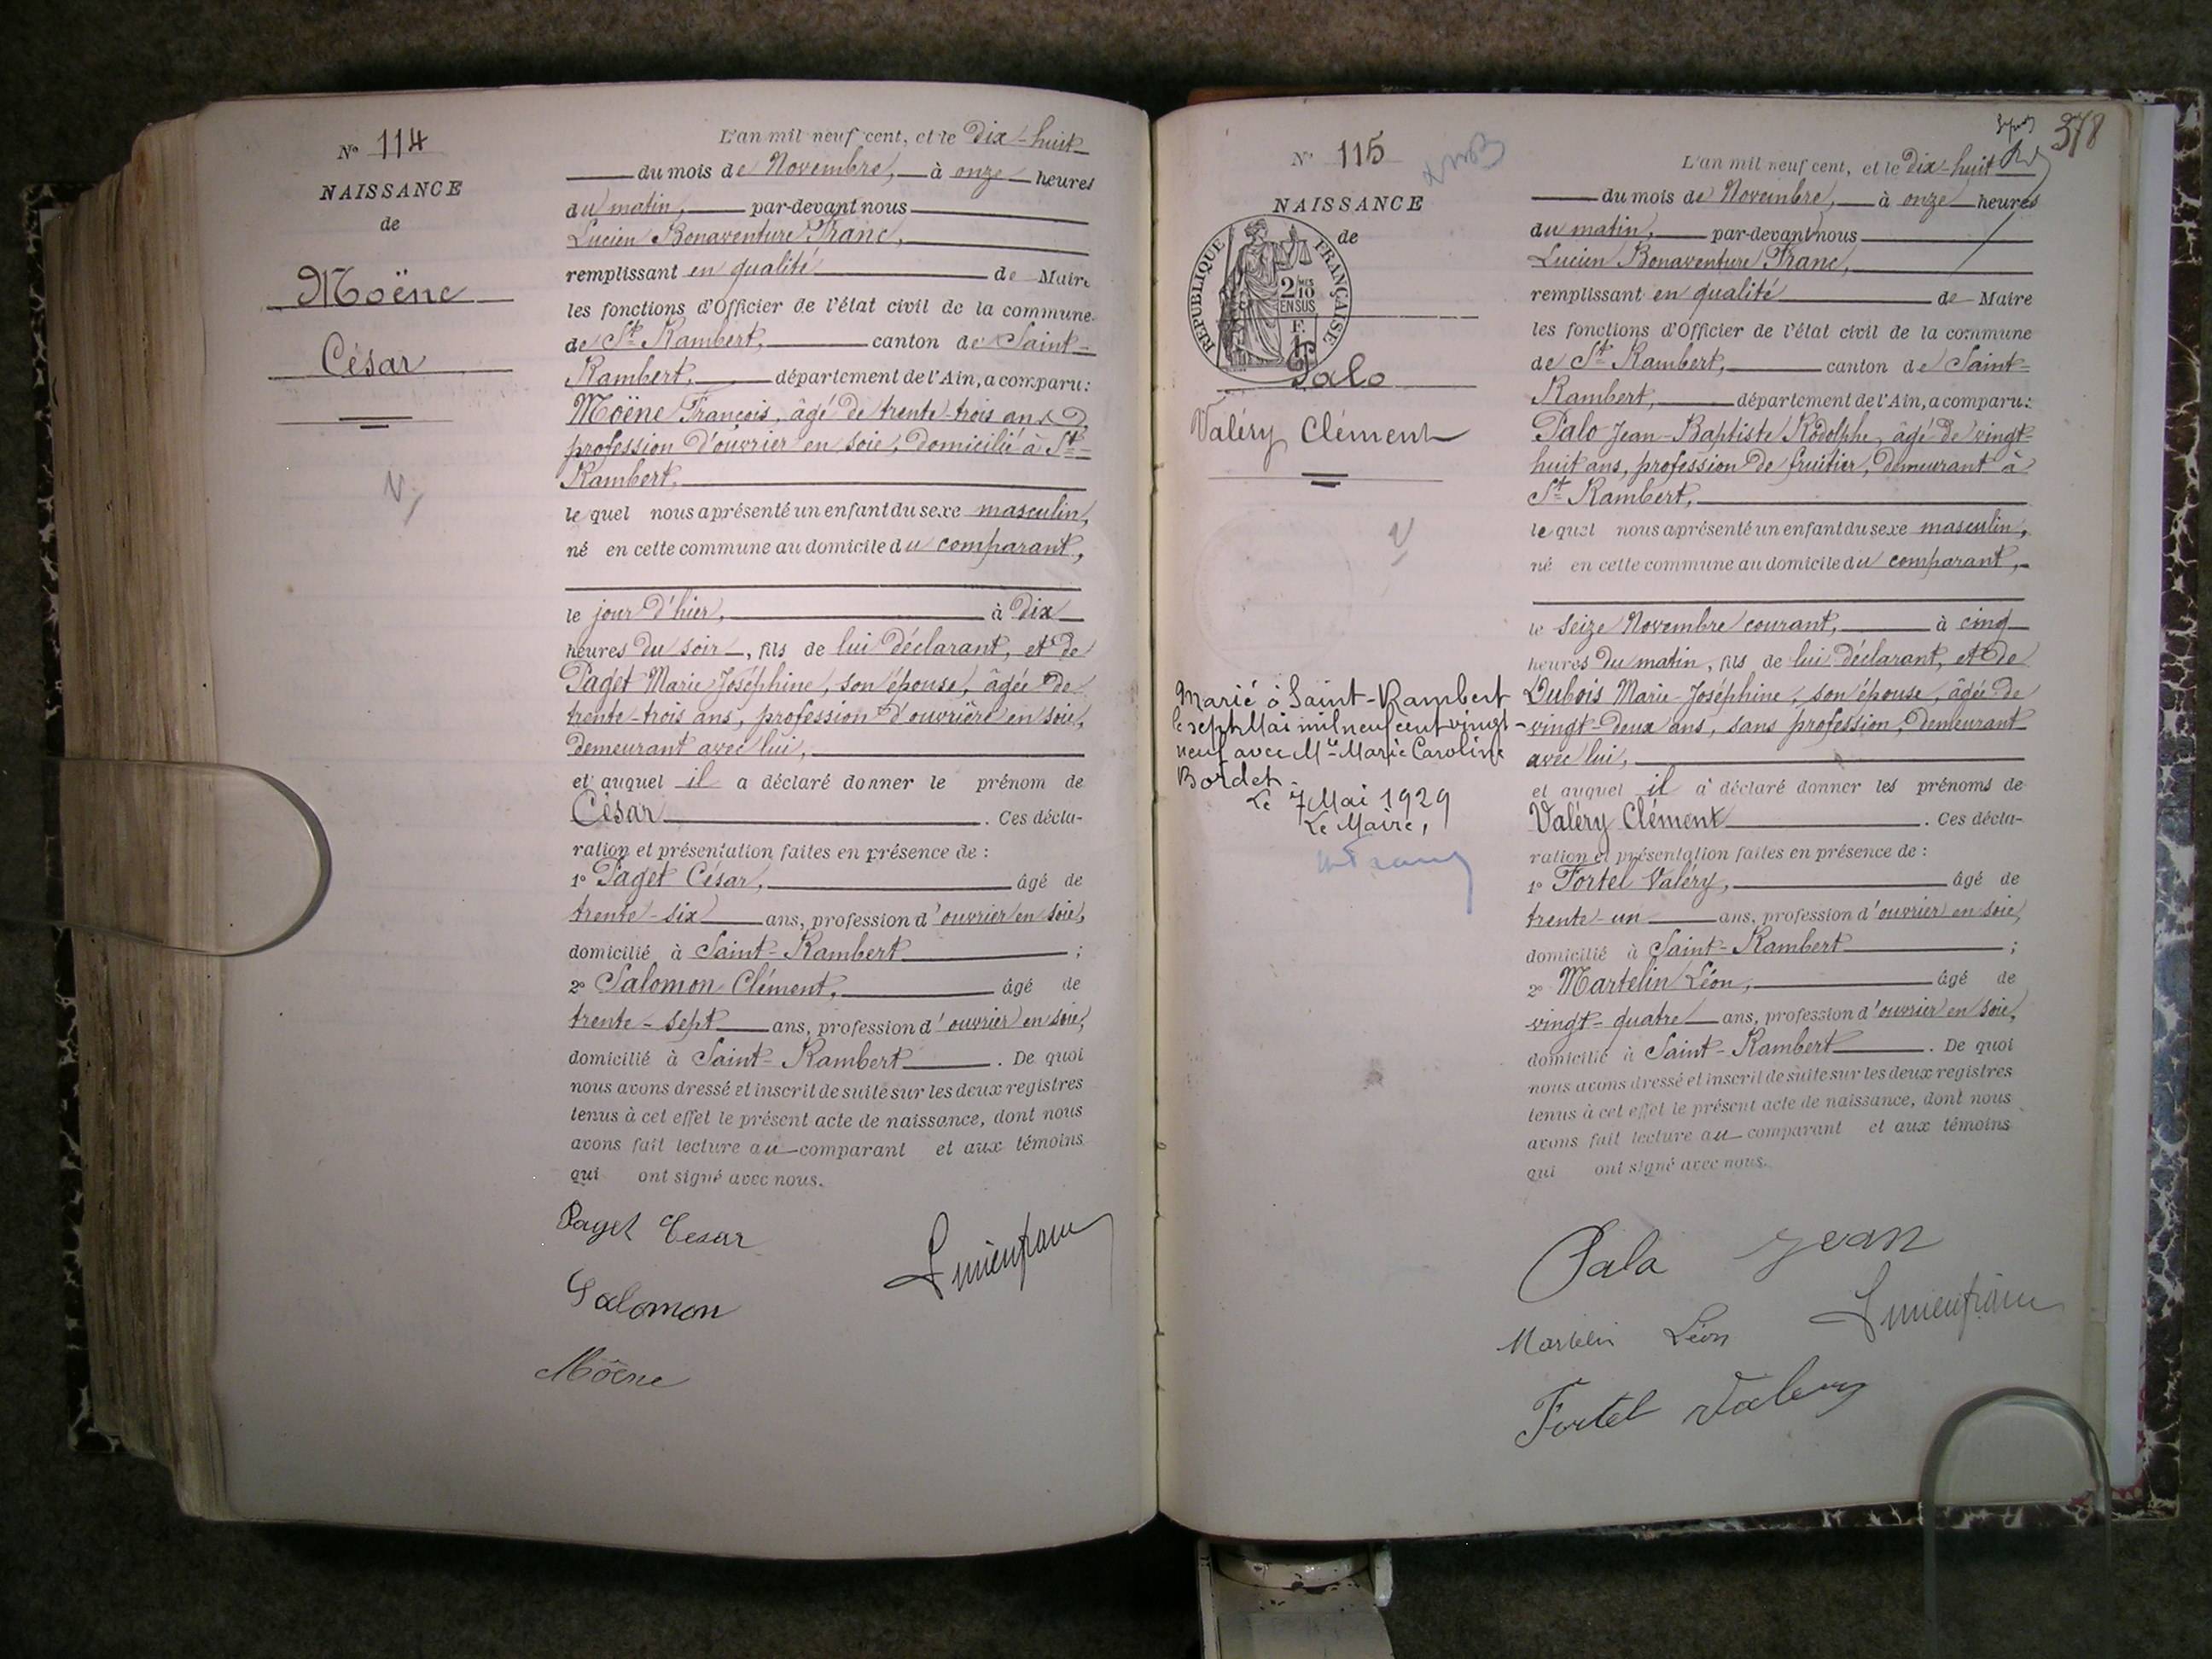 N° 114
NAISSANCE
de
Moëne
César
L'an mil neuf cent, et le dix-huit
du mois de Novembre, à onze heures
du matin, par-devant nous
Lucien Bonaventure Franc,
remplissant en qualité de Maire
les fonctions d'Officier de l'état civil de la commune
de St Rambert, canton de Saint-
Rambert, département de l'Ain, a comparu:
Moëne François, âgé de trente-trois ans,
profession d'ouvrier en soie, domicilié à St
Rambert,
lequel nous a présenté un enfant du sexe masculin,
né en cette commune au domicile du comparant,
le jour d'hier, à dix
heures du soir, fils de lui déclarant, et de
Paget Marie Joséphine, son épouse, âgée de
trente-trois ans, profession d'ouvrière en soie,
demeurant avec lui,
et auquel il a déclaré donner le prénom de
César. Ces décla-
ration et présentation faites en présence de :
1° Paget César, âgé de
trente-six ans, profession d'ouvrier en soie,
domicilié à Saint-Rambert ;
2° Salomon Clément, âgé de
trente-sept ans, profession d'ouvrier en soie,
domicilié à Saint-Rambert. De quoi
nous avons dressé et inscrit de suite sur les deux registres
tenus à cet effet le présent acte de naissance, dont nous
avons fait lecture au comparant et aux témoins
qui ont signé avec nous.
Paget Cesar
Lucien franc
Salomon
Moëne
378
N° 115
NAISSANCE
de
REPUBLIQUE FRANÇAISE
2/10 MES
EN SUS
F.
Palo
Valéry Clément
Marié à Saint-Rambert
le sept Mai mil neuf cent vingt-
neuf avec Mle Marie Caroline
Bordet.
Le 7 Mai 1929
Le Maire,
L'an mil neuf cent, et le dix-huit
du mois de Novembre, à onze heures
du matin, par-devant nous
Lucien Bonaventure Franc,
remplissant en qualité de Maire
les fonctions d'Officier de l'état civil de la commune
de St Rambert, canton de Saint-
Rambert, département de l'Ain, a comparu:
Palo Jean-Baptiste Rodolphe, âgé de vingt-
huit ans, profession de fruitier, demeurant à
St Rambert,
lequel nous a présenté un enfant du sexe masculin,
né en cette commune au domicile du comparant,
le seize Novembre courant, à cinq
heures du matin, fils de lui déclarant, et de
Dubois Marie-Joséphine, son épouse, âgée de
vingt-deux ans, sans profession, demeurant
avec lui,
et auquel il a déclaré donner les prénoms de
Valéry Clément. Ces décla-
ration et présentation faites en présence de :
1° Fortel Valéry, âgé de
trente-un ans, profession d'ouvrier en soie,
domicilié à Saint-Rambert ;
2° Martelin Léon, âgé de
vingt-quatre ans, profession d'ouvrier en soie,
domicilié à Saint-Rambert. De quoi
nous avons dressé et inscrit de suite sur les deux registres
tenus à cet effet le présent acte de naissance, dont nous
avons fait lecture au comparant et aux témoins
qui ont signé avec nous.
Palo Jean
Martelin Léon
Lucien franc
Fortel Valery